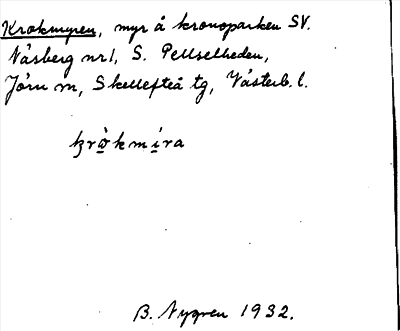 Krokmyren, myr å kronoparken SV.
Näsberg nr 1, S. Pellselheden,
Jörn sn, Skellefteå tg, Västerb. l.
krò̱kmí̱ra
B. Nygren 1932.